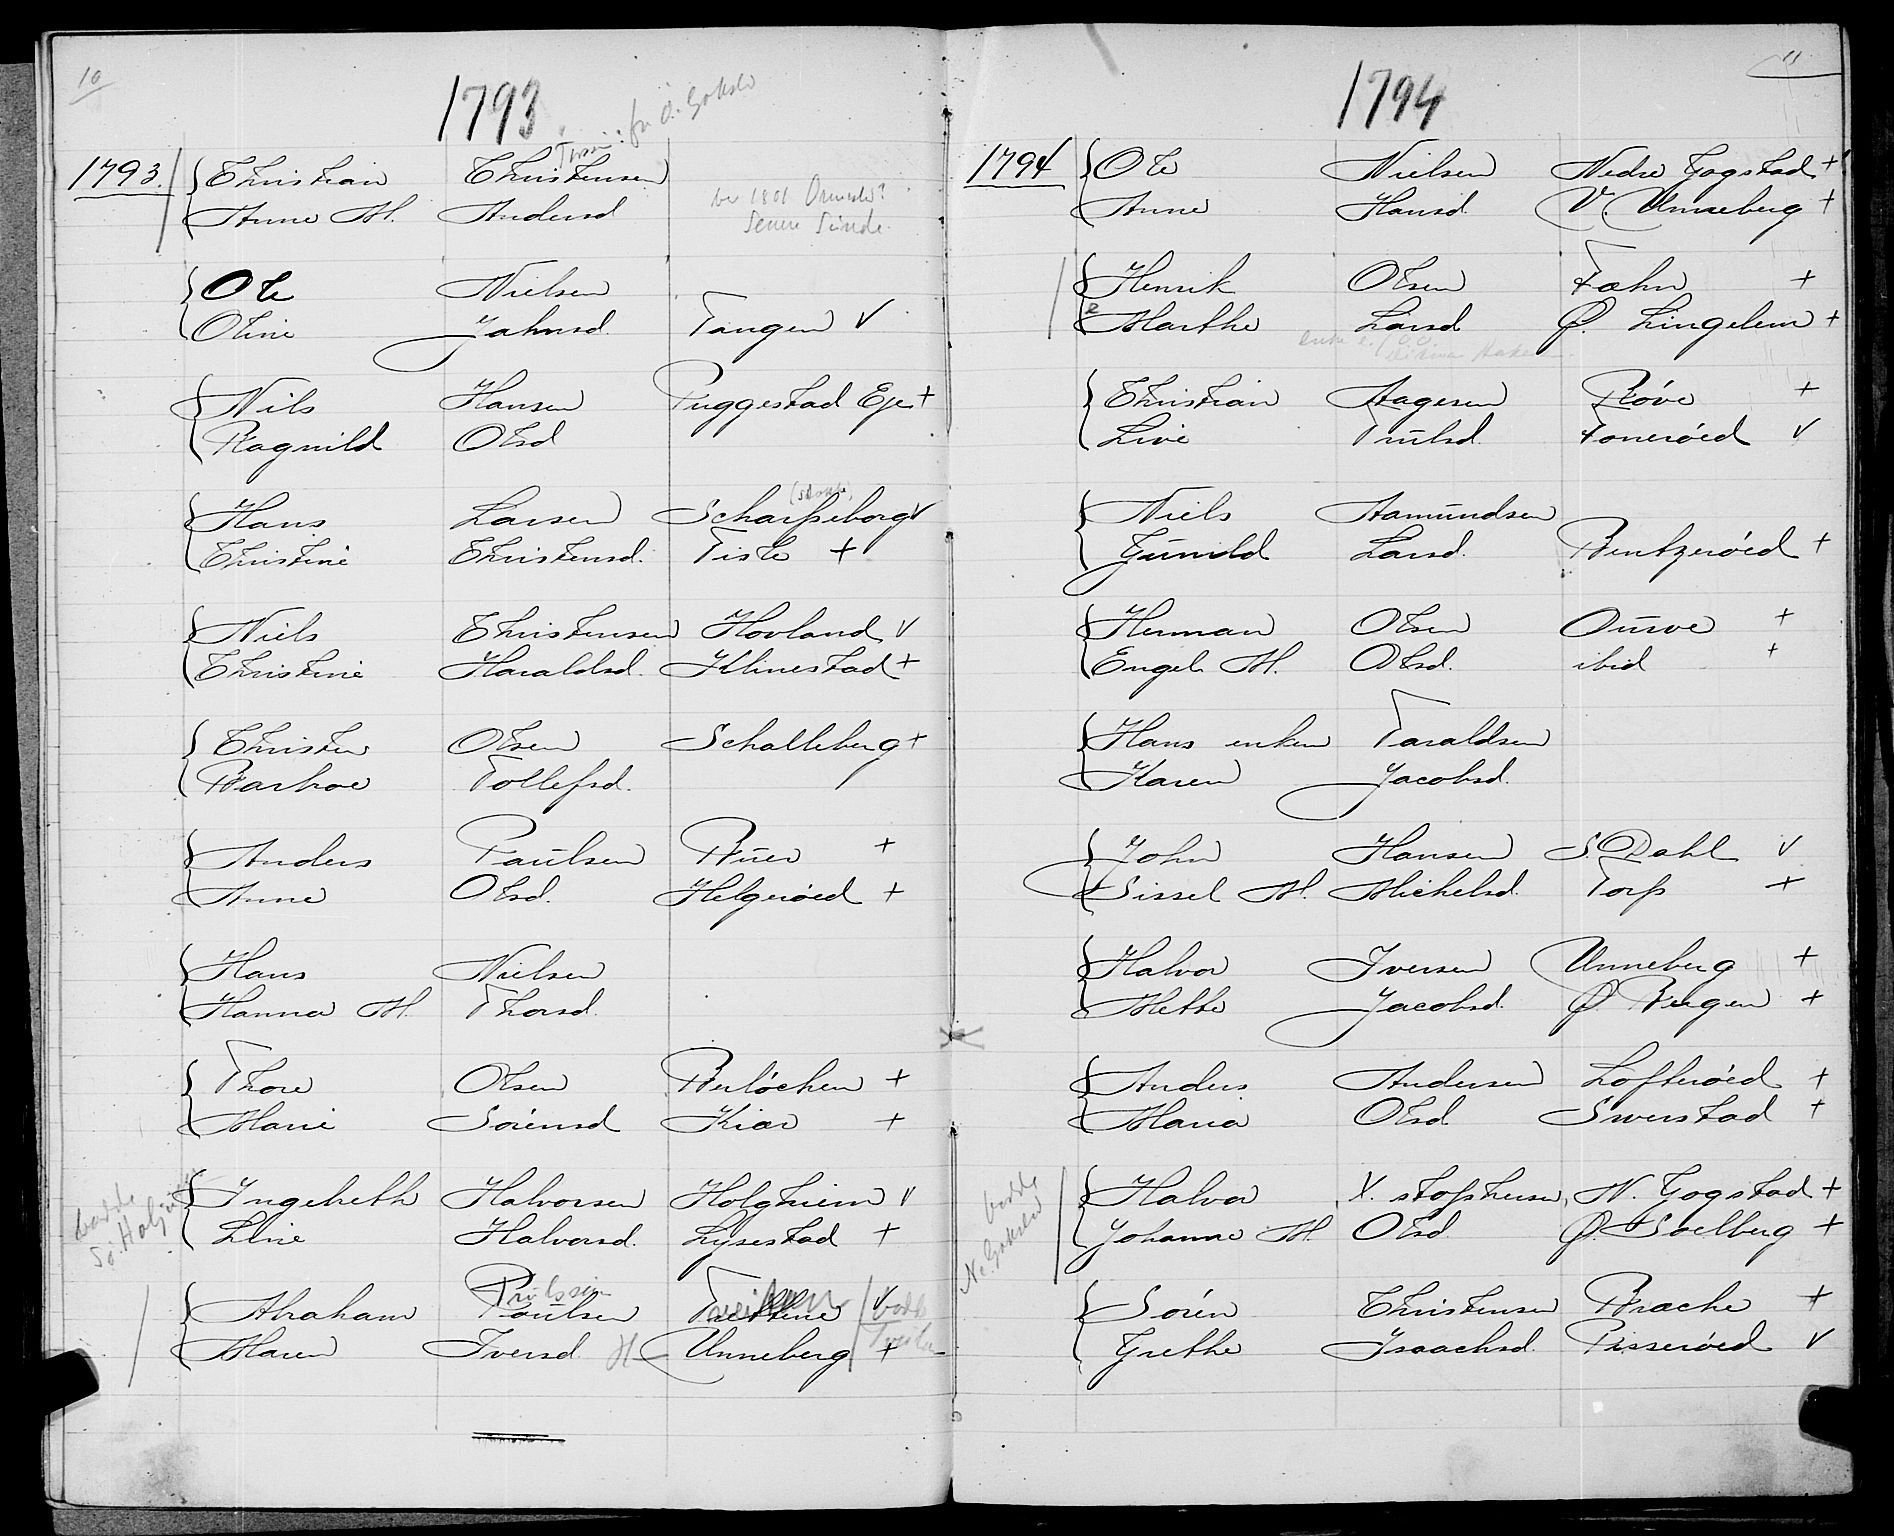 10
1793
fr Ö. Gokstad
1793. Christian Christensen
Anne M. Andersd
Senere Sunde
Ole Nielsen
Oline Jahnsd. Tangen V
Nils Hansen Puggestad Eje +
Ragnild Olsd
Hans Larsen Scharpseborg V
(Stokke)
Christine Christensd. Tiste +
Niels Christensen Hovland V
Christine Haraldsd. Klinestad +
Christen Olsen Schalleberg +
Barboe Tollefsd.
Anders Paulsen Buer +
Anne Olsd. Helgerøed +
Hans Nielsen
Hanna M. Thorsd.
Thore Olsen Berløchen +
Marie Sørensd Kiær +
bodde Sø. Holj
Ingebreth Halvorsen Holghiem V
Line Halvorsd. Lysestad +
Abraham Poulsen V
Maren Iversd H Unneberg +
11
1794
1794 Ole Nielsen Nedre Gogstad +
Anne Hansd. V. Unneberg +
Henrik Olsen Fæhn +
2 Marthe Larsd Ø. Lingelem +
Christian Aagesen Røve +
Live Trulsd. Fonerøed V
Niels Aamundsen
Gunild Larsd. Bentzerøed +
Herman Olsen Ourve +
Engel M. Olsd. ibid +
Hans enken Taraldsen
Karen Jacobsd.
John Hansen S. Dahl V
Sissel M. Michelsd. Torp +
Halvor Iversen Unneberg +
Methe Jacobsd. Ø. Bergen +
Anders Andersen Lofterøed +
Maria Olsd Sverstad +
bodde Ne. Gokstad
Halvor X. stophersen, N. Gogstad +
Johanne M. Olsd Ø. Solberg +
Søren Christensen Brache +
Grethe Isaachsd. Pisserøed V